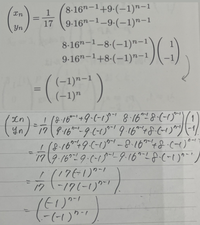 (x_n y_n) = 1/17 (8·16^{n-1}+9·(-1)^{n-1}
9·16^{n-1}-9·(-1)^{n-1}
8·16^{n-1}-8·(-1)^{n-1}
9·16^{n-1}+8·(-1)^{n-1}) (1 -1)
= ((-1)^{n-1} (-1)^n)
(x_n y_n) = 1/17 (8·16^{n-1}+9·(-1)^{n-1} 8·16^{n-1}-8·(-1)^{n-1}
9·16^{n-1}-9·(-1)^{n-1} 9·16^{n-1}+8·(-1)^{n-1}) (1 -1)
= 1/17 (8·16^{n-1}+9·(-1)^{n-1}-8·16^{n-1}+8·(-1)^{n-1}
9·16^{n-1}-9·(-1)^{n-1}-9·16^{n-1}-8·(-1)^{n-1})
= 1/17 (17(-1)^{n-1}
-17(-1)^{n-1})
= ((-1)^{n-1}
-(-1)^{n-1})